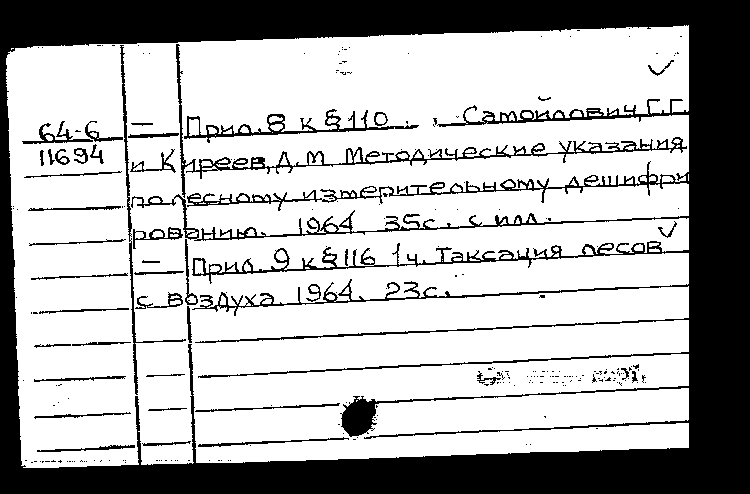 64-6 — Прил. 8 к §110. , Самойлович, Г.Г.
11694 и Киреев, Д.М Методические указания
по лесному измерительному дешифри
рованию. 1964. 35с. с илл.
— Прил. 9 к §116 1ч. Таксация лесов
с воздуха. 1964. 23с.